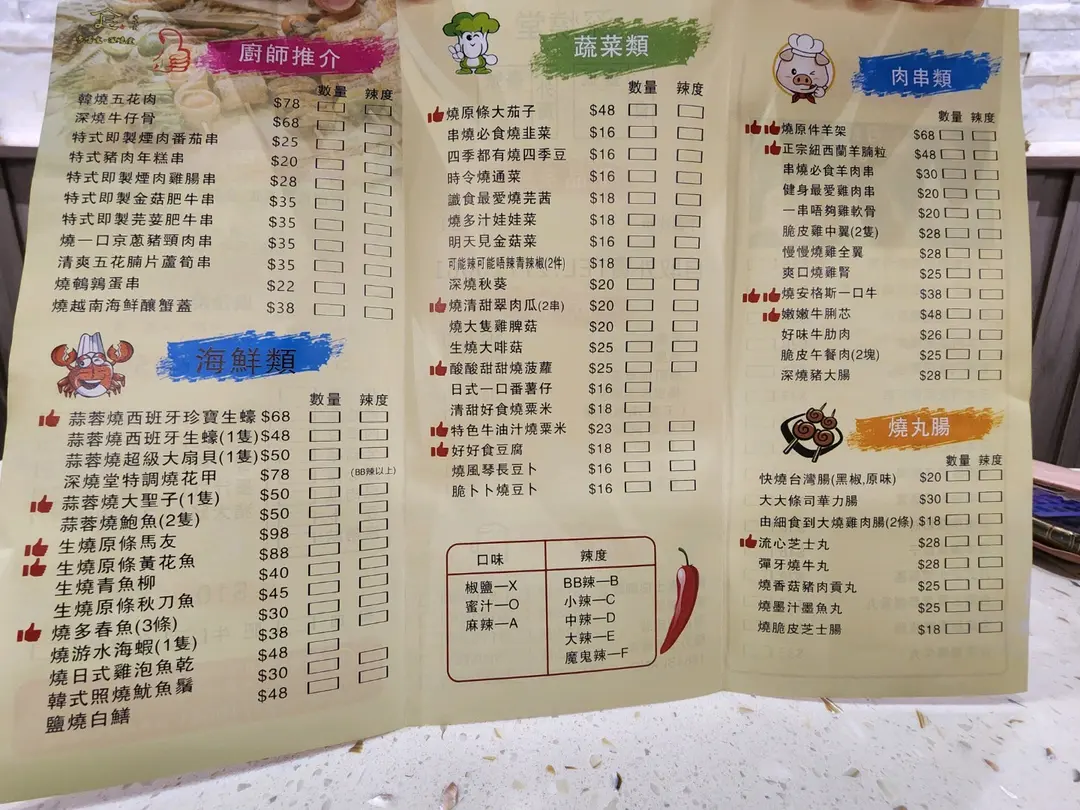 廚師推介
數量 辣度
韓燒五花肉 $78
深燒牛仔骨 $68
特式即製煙肉番茄串 $25
特式豬肉年糕串 $20
特式即製煙肉雞腸串 $28
特式即製金菇肥牛串 $35
特式即製芫荽肥牛串 $35
燒一口京蔥豬頸肉串 $35
清爽五花腩片蘆筍串 $35
燒鵪鶉蛋串 $22
燒越南海鮮釀蟹蓋 $38
海鮮類
數量 辣度
蒜蓉燒西班牙珍寶生蠔 $68
蒜蓉燒西班牙生蠔(1隻) $48
蒜蓉燒超級大扇貝(1隻) $50
深燒堂特調燒花甲 $78 (BB辣以上)
蒜蓉燒大聖子(1隻) $50
蒜蓉燒鮑魚(2隻) $50
生燒原條馬友 $98
生燒原條黃花魚 $88
生燒青魚柳 $40
生燒原條秋刀魚 $45
燒多春魚(3條) $30
燒游水海蝦(1隻) $38
燒日式雞泡魚乾 $48
韓式照燒魷魚鬚 $30
鹽燒白鱔 $48
蔬菜類
數量 辣度
燒原條大茄子 $48
串燒必食燒韭菜 $16
四季都有燒四季豆 $16
時令燒通菜 $16
識食最愛燒芫茜 $18
燒多汁娃娃菜 $18
明天見金菇菜 $16
可能辣可能唔辣青辣椒(2件) $18
深燒秋葵 $20
燒清甜翠肉瓜(2串) $20
燒大隻雞脾菇 $20
生燒大啡菇 $25
酸酸甜甜燒菠蘿 $25
日式一口番薯仔 $16
清甜好食燒粟米 $18
特色牛油汁燒粟米 $23
好好食豆腐 $18
燒風琴長豆卜 $16
脆卜卜燒豆卜 $16
口味 辣度
椒鹽—X
蜜汁—O
麻辣—A
BB辣—B
小辣—C
中辣—D
大辣—E
魔鬼辣—F
肉串類
數量 辣度
燒原件羊架 $68
正宗紐西蘭羊腩粒 $48
串燒必食羊肉串 $30
健身最愛雞肉串 $20
一串唔夠雞軟骨 $20
脆皮雞中翼(2隻) $28
慢慢燒雞全翼 $28
爽口燒雞腎 $25
燒安格斯一口牛 $38
嫩嫩牛脷芯 $48
好味牛肋肉 $26
脆皮午餐肉(2塊) $25
深燒豬大腸 $28
燒丸腸
數量 辣度
快燒台灣腸(黑椒,原味) $20
大大條司華力腸 $30
由細食到大燒雞肉腸(2條) $18
流心芝士丸 $28
彈牙燒牛丸 $28
燒香菇豬肉貢丸 $25
燒墨汁墨魚丸 $25
燒脆皮芝士腸 $18